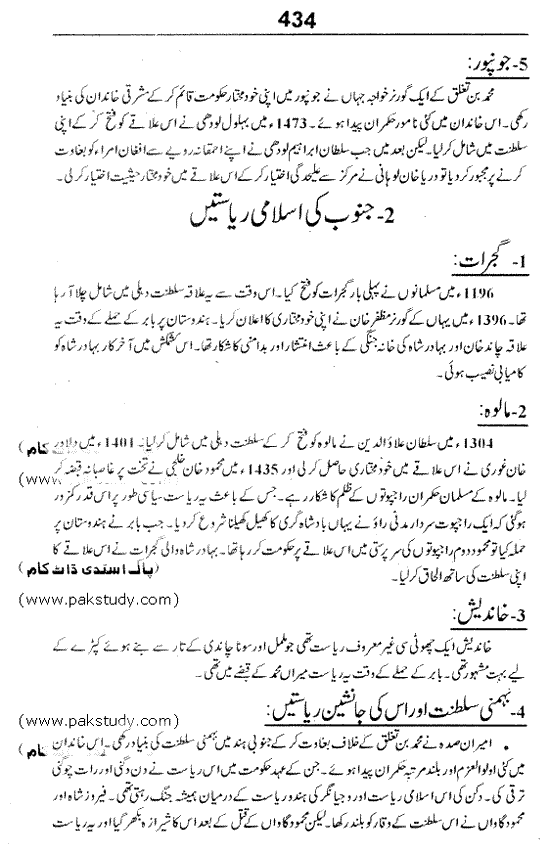 434
5- جونپور:
محمد بن تغلق کے ایک گورنر خواجہ جہاں نے جونپور میں اپنی خود مختار حکومت قائم کر کے شرقی خاندان کی بنیاد
رکھی۔ اس خاندان میں کئی نامور حکمران پیدا ہوئے۔ 1473ء میں بہلول لودھی نے اس علاقے کو فتح کر کے اپنی
سلطنت میں شامل کر لیا۔ لیکن بعد میں جب سلطان ابراہیم لودھی نے اپنے احمقانہ رویے سے افغان امراء کو بغاوت
کرنے پر مجبور کر دیا تو دریا خان لوہانی نے مرکز سے علیحدگی اختیار کر کے اس علاقے میں خود مختار حیثیت اختیار کر لی۔
2- جنوب کی اسلامی ریاستیں
1- گجرات:
1196ء میں مسلمانوں نے پہلی بار گجرات کو فتح کیا۔ اس وقت سے یہ علاقہ سلطنت دہلی میں شامل چلا آ رہا
تھا۔ 1396ء میں یہاں کے گورنر مظفر خان نے اپنی خود مختاری کا اعلان کر دیا۔ ہندوستان پر بابر کے حملے کے وقت یہ
علاقہ چاند خان اور بہادر شاہ کی خانہ جنگی کے باعث انتشار اور بدامنی کا شکار تھا۔ اس کشمکش میں آخر کار بہادر شاہ کو
کامیابی نصیب ہوئی۔
2- مالوہ:
1304ء میں سلطان علاؤالدین نے مالوہ کو فتح کر کے سلطنت دہلی میں شامل کر لیا۔ 1401ء میں دلاور
خان غوری نے اس علاقے میں خود مختاری حاصل کر لی اور 1435ء میں محمود خان خلجی نے تخت پر غاصبانہ قبضہ کر
لیا۔ مالوہ کے مسلمان حکمران راجپوتوں کے ظلم کا شکار رہے۔ جس کے باعث یہ ریاست سیاسی طور پر اس قدر کمزور
ہو گئی کہ ایک راجپوت سردار مدنی راؤ نے یہاں بادشاہ گری کا کھیل کھیلنا شروع کر دیا۔ جب بابر نے ہندوستان پر
حملہ کیا تو محمود دوم راجپوتوں کی سرپرستی میں اس علاقے پر حکومت کر رہا تھا۔ بہادر شاہ والی گجرات نے اس علاقے کا
اپنی سلطنت کی ساتھ الحاق کر لیا۔
(پاک اسٹڈی ڈاٹ کام)
(www.pakstudy.com)
3- خاندیش:
خاندیش ایک چھوٹی سی غیر معروف ریاست تھی جو ململ اور سونا چاندی کے تار سے بنے ہوئے کپڑے کے
لیے بہت مشہور تھی۔ بابر کے حملے کے وقت یہ ریاست میراں محمد کے قبضے میں تھی۔
4- بہمنی سلطنت اور اس کی جانشین ریاستیں:
(www.pakstudy.com)
امیران صدہ نے محمد بن تغلق کے خلاف بغاوت کر کے جنوبی ہند میں بہمنی سلطنت کی بنیاد رکھی۔ اس خاندان
میں کئی اولوالعزم اور بلند مرتبہ حکمران پیدا ہوئے۔ جن کے عہد حکومت میں اس ریاست نے دن دگنی اور رات چوگنی
ترقی کی۔ دکن کی اس اسلامی ریاست اور وجیانگر کی ہندو ریاست کے درمیان ہمیشہ جنگ رہتی تھی۔ فیروز شاہ اور
محمود گاواں نے اس سلطنت کے وقار کو بلند رکھا۔ لیکن محمود گاواں کے قتل کے بعد اس کا شیرازہ بکھر گیا اور یہ ریاست